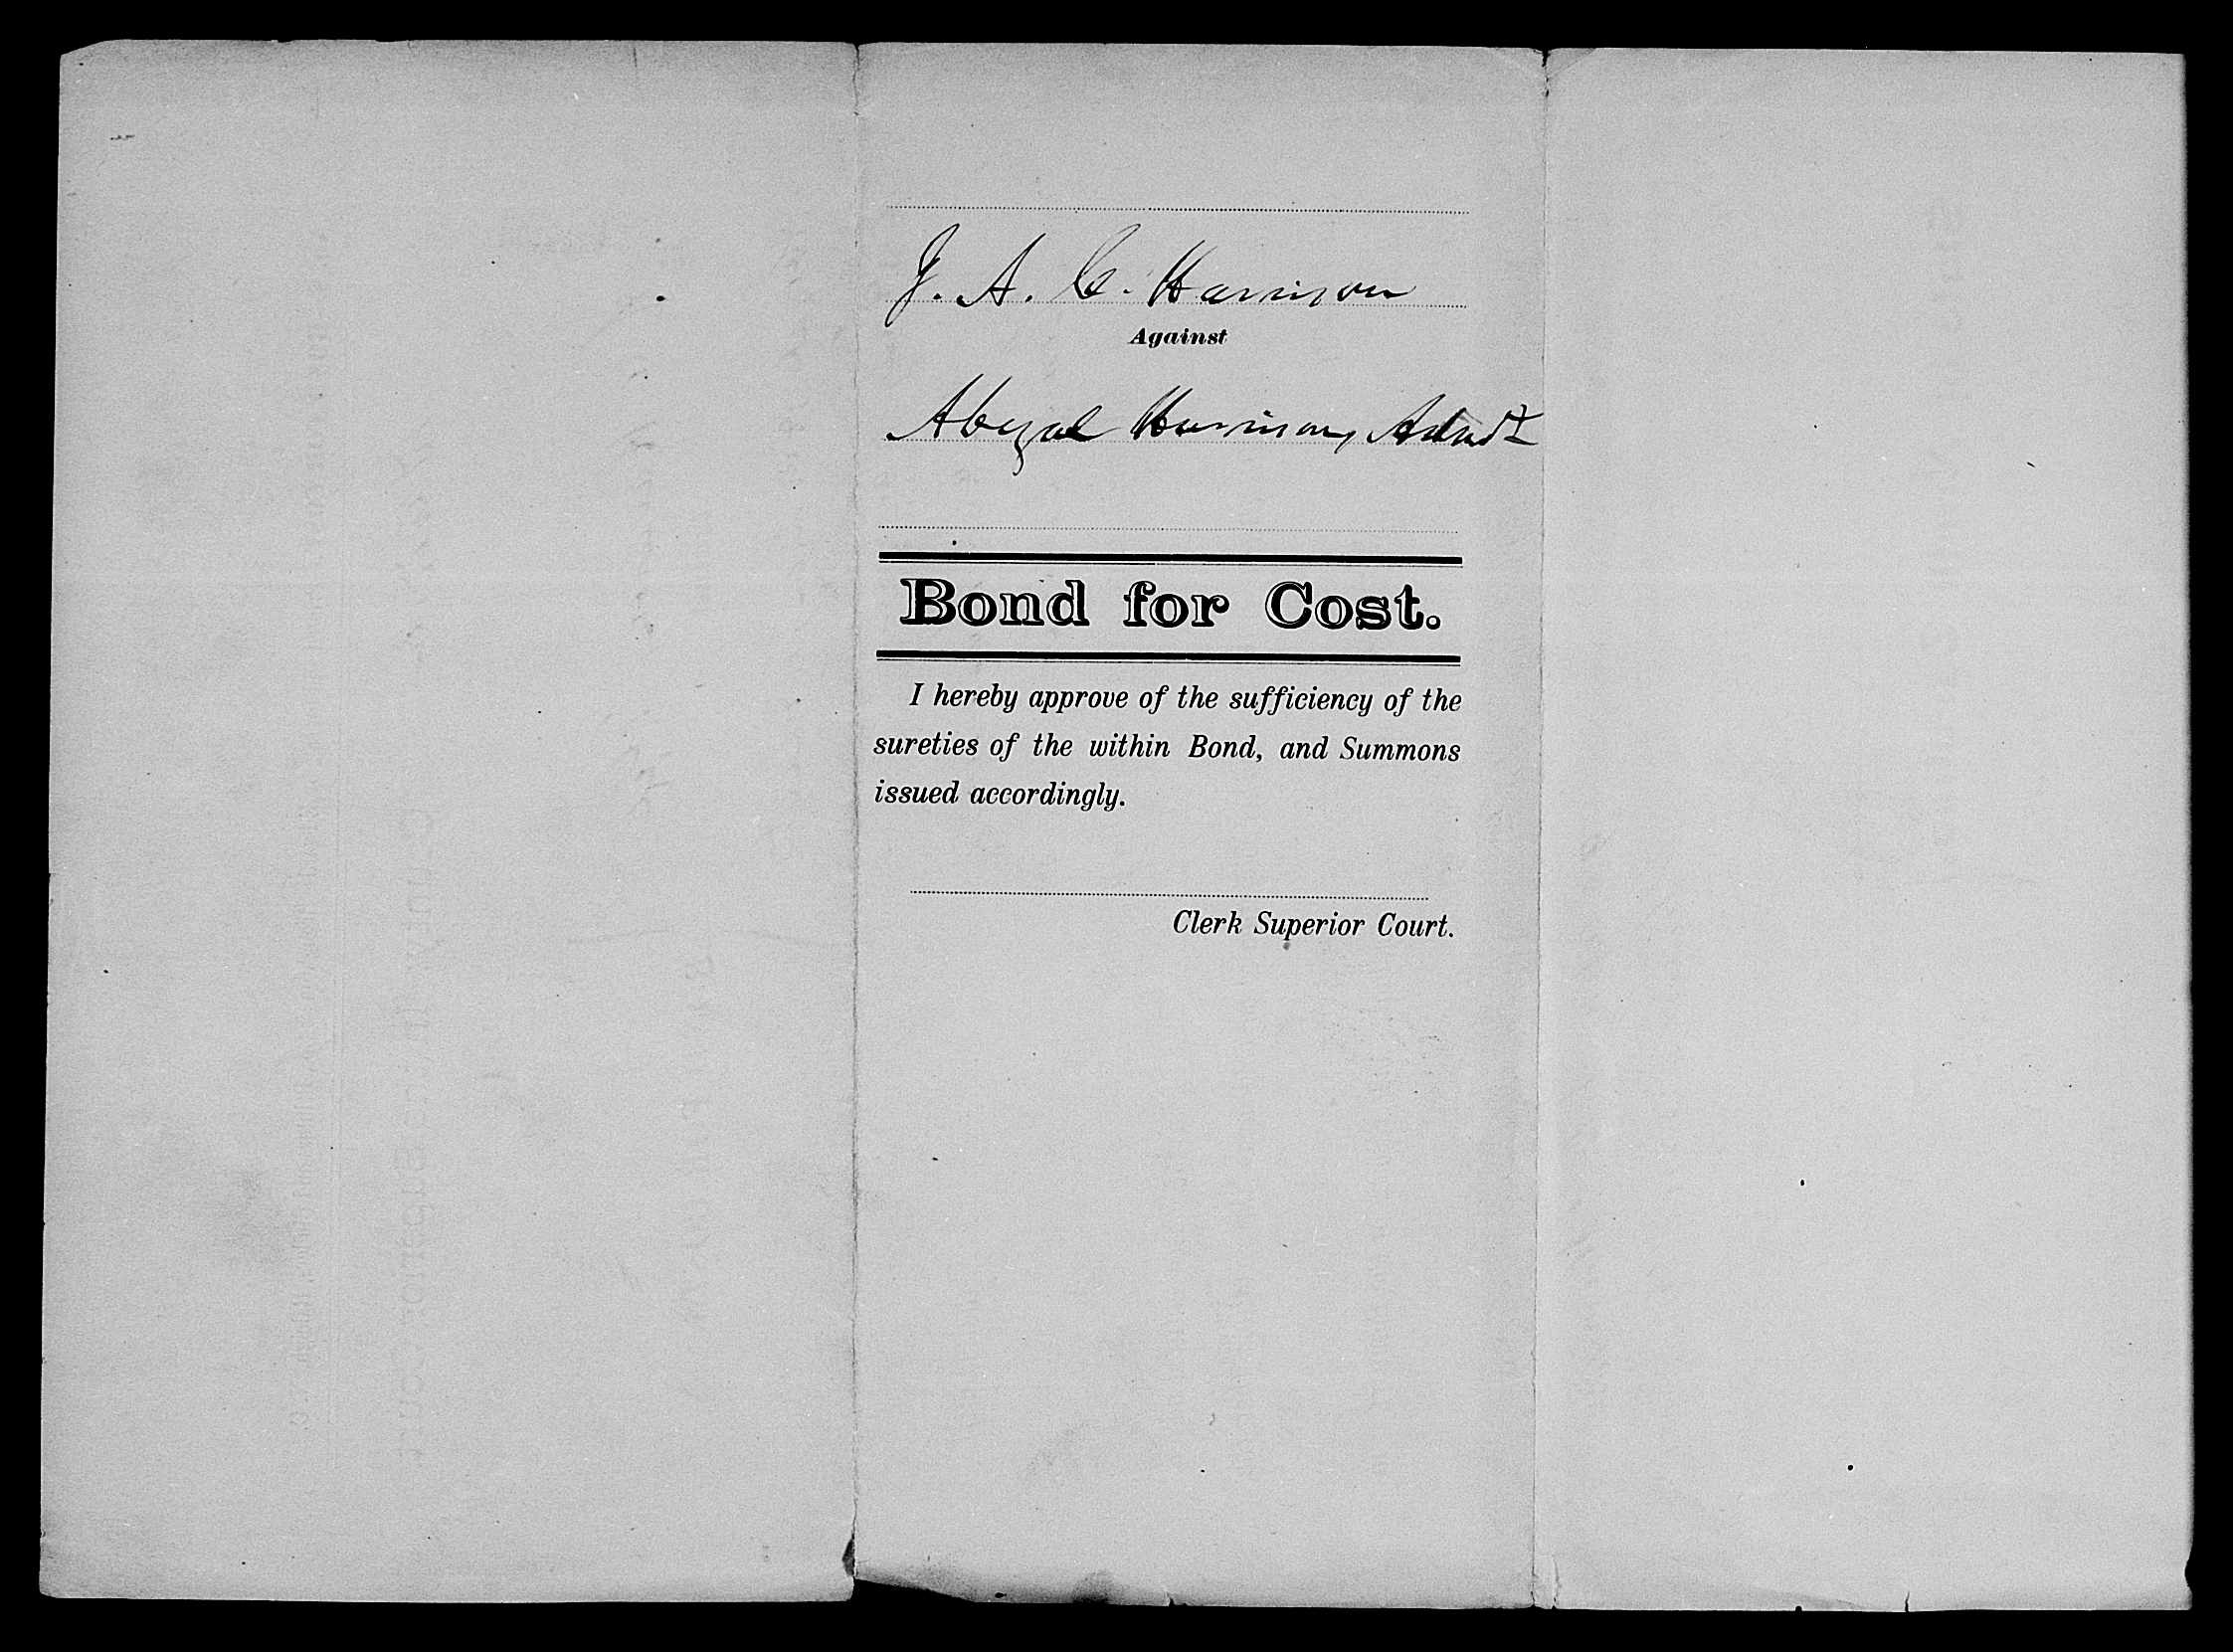 J. A. C. Harrison
Against
Abegal Harrison, Admx
Bond for Cost.
I hereby approve of the sufficiency of the
sureties of the within Bond, and Summons
issued accordingly.
Clerk Superior Court.